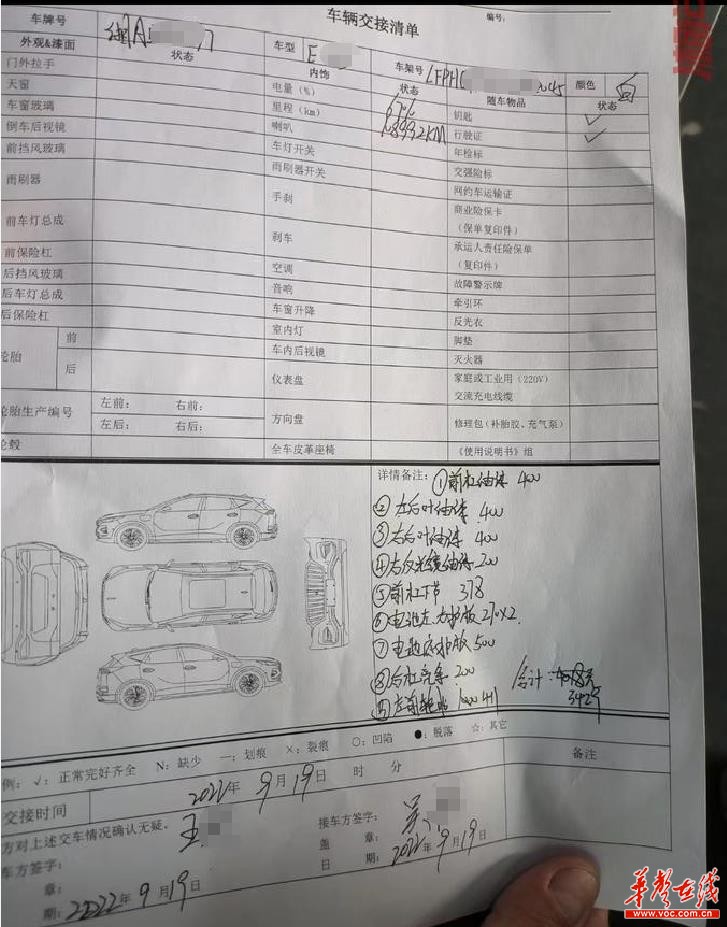 车辆交接清单
编号:
车牌号 湘A 车型 E 车架号 LFPH 颜色 白
外观&漆面 状态 内饰 状态 随车物品 状态
门外拉手 电量(%) 67% 钥匙 ✓
天窗 里程(km) 行驶证 ✓
车窗玻璃 喇叭 年检标
倒车后视镜 车灯开关 交强险标
前挡风玻璃 雨刷器开关 网约车运输证
雨刷器 手刹 商业险保卡
(保单复印件)
前车灯总成 刹车 承运人责任险保单
(复印件)
前保险杠 空调 故障警示牌
后挡风玻璃 音响 牵引环
后车灯总成 车窗升降 反光衣
后保险杠 室内灯 脚垫
轮胎 前 车内后视镜 灭火器
后 仪表盘 家庭或工业用(220V)
交流充电线缆
轮胎生产编号 左前: 右前: 方向盘 修理包(补胎胶、充气泵)
左后: 右后:
轮毂 全车皮革座椅 《使用说明书》组
详情备注: ①前杠油漆 400
②左后叶油漆 400
③右后叶油漆 400
④右反光镜油漆 200
⑤前杠下节 378
⑥电池左右护板 270×2
⑦电池底护板 500
⑧后杠亮条 200
合计:
例: √: 正常完好齐全 N: 缺少 —: 划痕 ×: 裂痕 ○: 凹陷 ●: 脱落 ☆: 其它
交接时间 2022年 9月19日 时 分 备注
方对上述交车情况确认无疑。 王
车方签字: 接车方签字:
章: 盖 章:
期: 2022年 9月19日 日 期: 2022年9月19日
华声在线
www.voc.com.cn